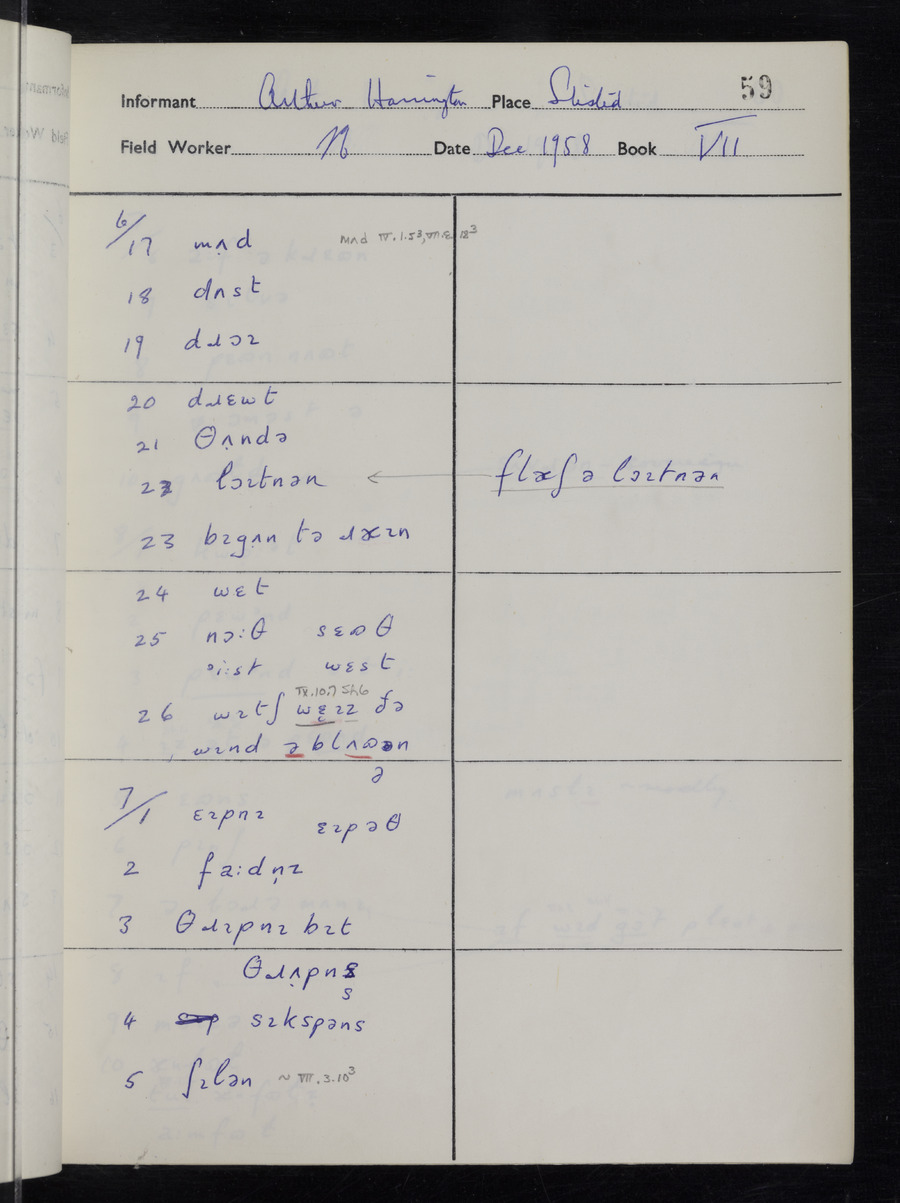 59
Informant Arthur Harrington Place Stisted
Field Worker N Date Dec 1958 Book VII
6/17 mʌ̣d mʌd IV.1.5³, VII.6.18³
18 dʌst
19 dɹɔɪ
20 dɹɛωt
21 θʌ̣ndə
22 lɔɪtnən ← flæʃ ə lɔɪtnən
23 bɪgʌ̣n tə ɹæɪn
24 wɛt
25 nɔ:θ sɛωθ
i:st wɛst
IX.10.7 Sh6
26 wɪtʃ wɛ̣ɪz ðə
wɪnd ə blʌωən
ə
7/1 ɛɪpnɪ ɛɪpəθ
2 fa:dṇɪ
3 θɹɪpnɪ bɪt
θɹʌ̣pns
s
4 sɪkspəns
5 ʃɪlən ~ VII.3.10³